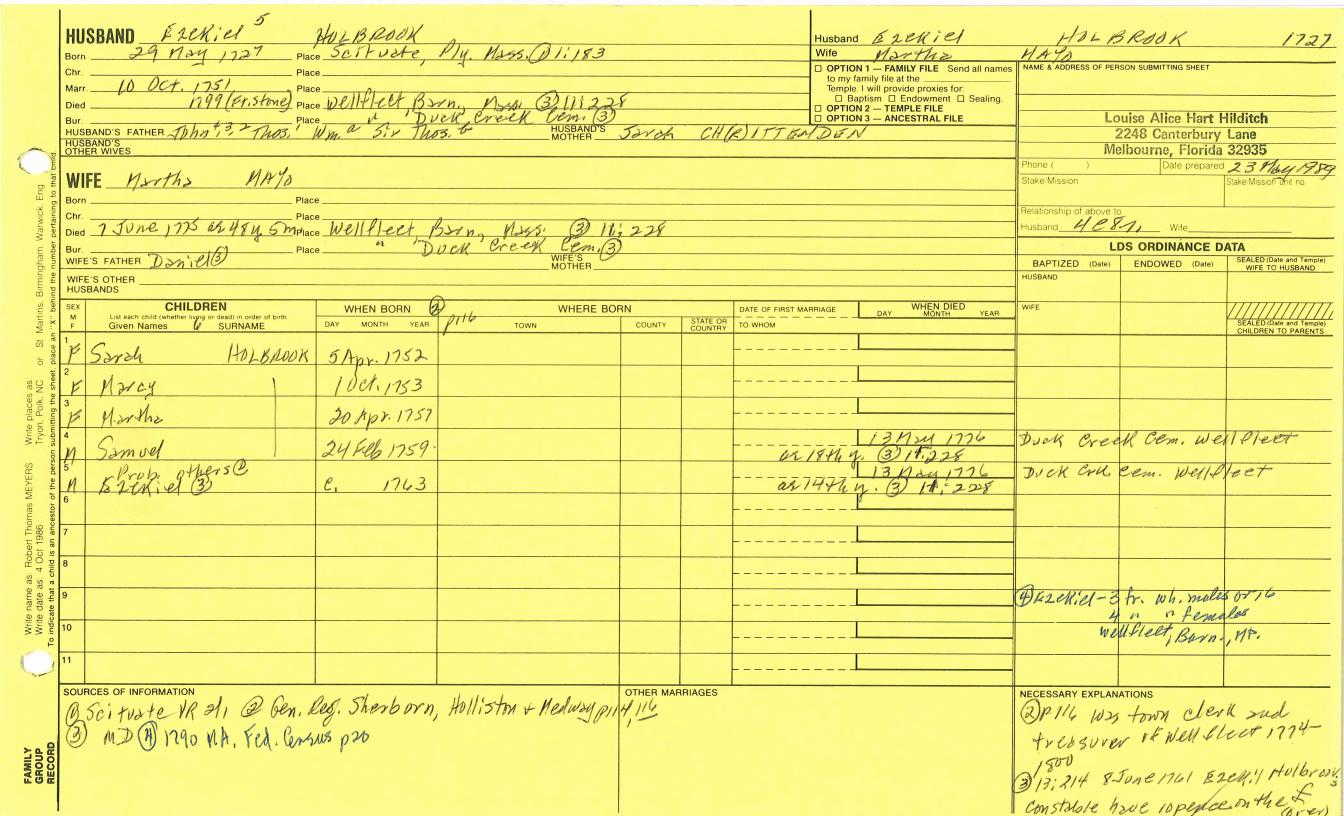 HUSBAND Ezekiel 5 HOLBROOK
Born 29 May 1727 Place Scituate, Ply. Mass. ① 1:183
Chr. Place
Marr. 10 Oct. 1751 Place
Died 1799 (Fr. Stone) Place Wellfleet, Barn., Mass. ③ 11:228
Bur. Place " Duck Creek Cem. ③
HUSBAND'S FATHER John 4,3,2 Thos.1 Wm.a Sir Thos.b HUSBAND'S MOTHER Sarah CH(R)ITTENDEN
HUSBAND'S OTHER WIVES
WIFE Martha MAYO
Born Place
Chr. Place
Died 7 June 1775 ae 48 y 5 m Place Wellfleet, Barn, Mass. ③ 11:228
Bur. Place " Duck Creek Cem. ③
WIFE'S FATHER Daniel ③ WIFE'S MOTHER
WIFE'S OTHER HUSBANDS
Husband Ezekiel HOLBROOK 1727
Wife Martha MAYO
☐ OPTION 1 — FAMILY FILE Send all names
to my family file at the
Temple. I will provide proxies for:
☐ Baptism ☐ Endowment ☐ Sealing.
☐ OPTION 2 — TEMPLE FILE
☐ OPTION 3 — ANCESTRAL FILE
NAME & ADDRESS OF PERSON SUBMITTING SHEET
Louise Alice Hart Hilditch
2248 Canterbury Lane
Melbourne, Florida 32935
Phone ( ) Date prepared 23 May 1989
Stake/Mission Stake/Mission unit no.
Relationship of above to
Husband Wife
LDS ORDINANCE DATA
BAPTIZED (Date) ENDOWED (Date) SEALED (Date and Temple) WIFE TO HUSBAND
HUSBAND
WIFE
SEALED (Date and Temple) CHILDREN TO PARENTS
SEX M F
CHILDREN
List each child (whether living or dead) in order of birth
Given Names 6 SURNAME
WHEN BORN ② p116
DAY MONTH YEAR
WHERE BORN
TOWN COUNTY STATE OR COUNTRY
DATE OF FIRST MARRIAGE
TO WHOM
WHEN DIED
DAY MONTH YEAR
1 F Sarah HOLBROOK 5 Apr. 1752
2 F Marcy 1 Oct. 1753
3 F Martha 20 Apr. 1757
4 M Samuel 24 Feb 1759 13 May 1776 Duck Creek Cem. Wellfleet
ae 18th y. ③ 11:228
Prob. others ②
5 M Ezekiel ③ c. 1763 13 May 1776 Duck Crk Cem. Wellfleet
ae 14th y. ③ 11:228
6
7
8
9
10
11
④ Ezekiel - 3 fr. wh. males ov 16
4 " " females
Wellfleet, Barn., MA.
SOURCES OF INFORMATION
① Scituate VR ② Gen. Reg. Sherborn, Holliston & Medway p114, 116
③ MD ④ 1790 MA. Fed. Census p20
OTHER MARRIAGES
NECESSARY EXPLANATIONS
② p116 was town clerk and
treasurer of Wellfleet 1774-
1800
③ 13:214 8 June 1761 Ezekil Holbrook
constable have 10 pence on the £
(over)
Write name as Robert Thomas MEYERS Write places as Tryon, Polk, NC or St Martins, Birmingham, Warwick, Eng.
Write date as 4 Oct 1986
To indicate that a child is an ancestor of the person submitting the sheet, place an "X" behind the number pertaining to that child
FAMILY GROUP RECORD